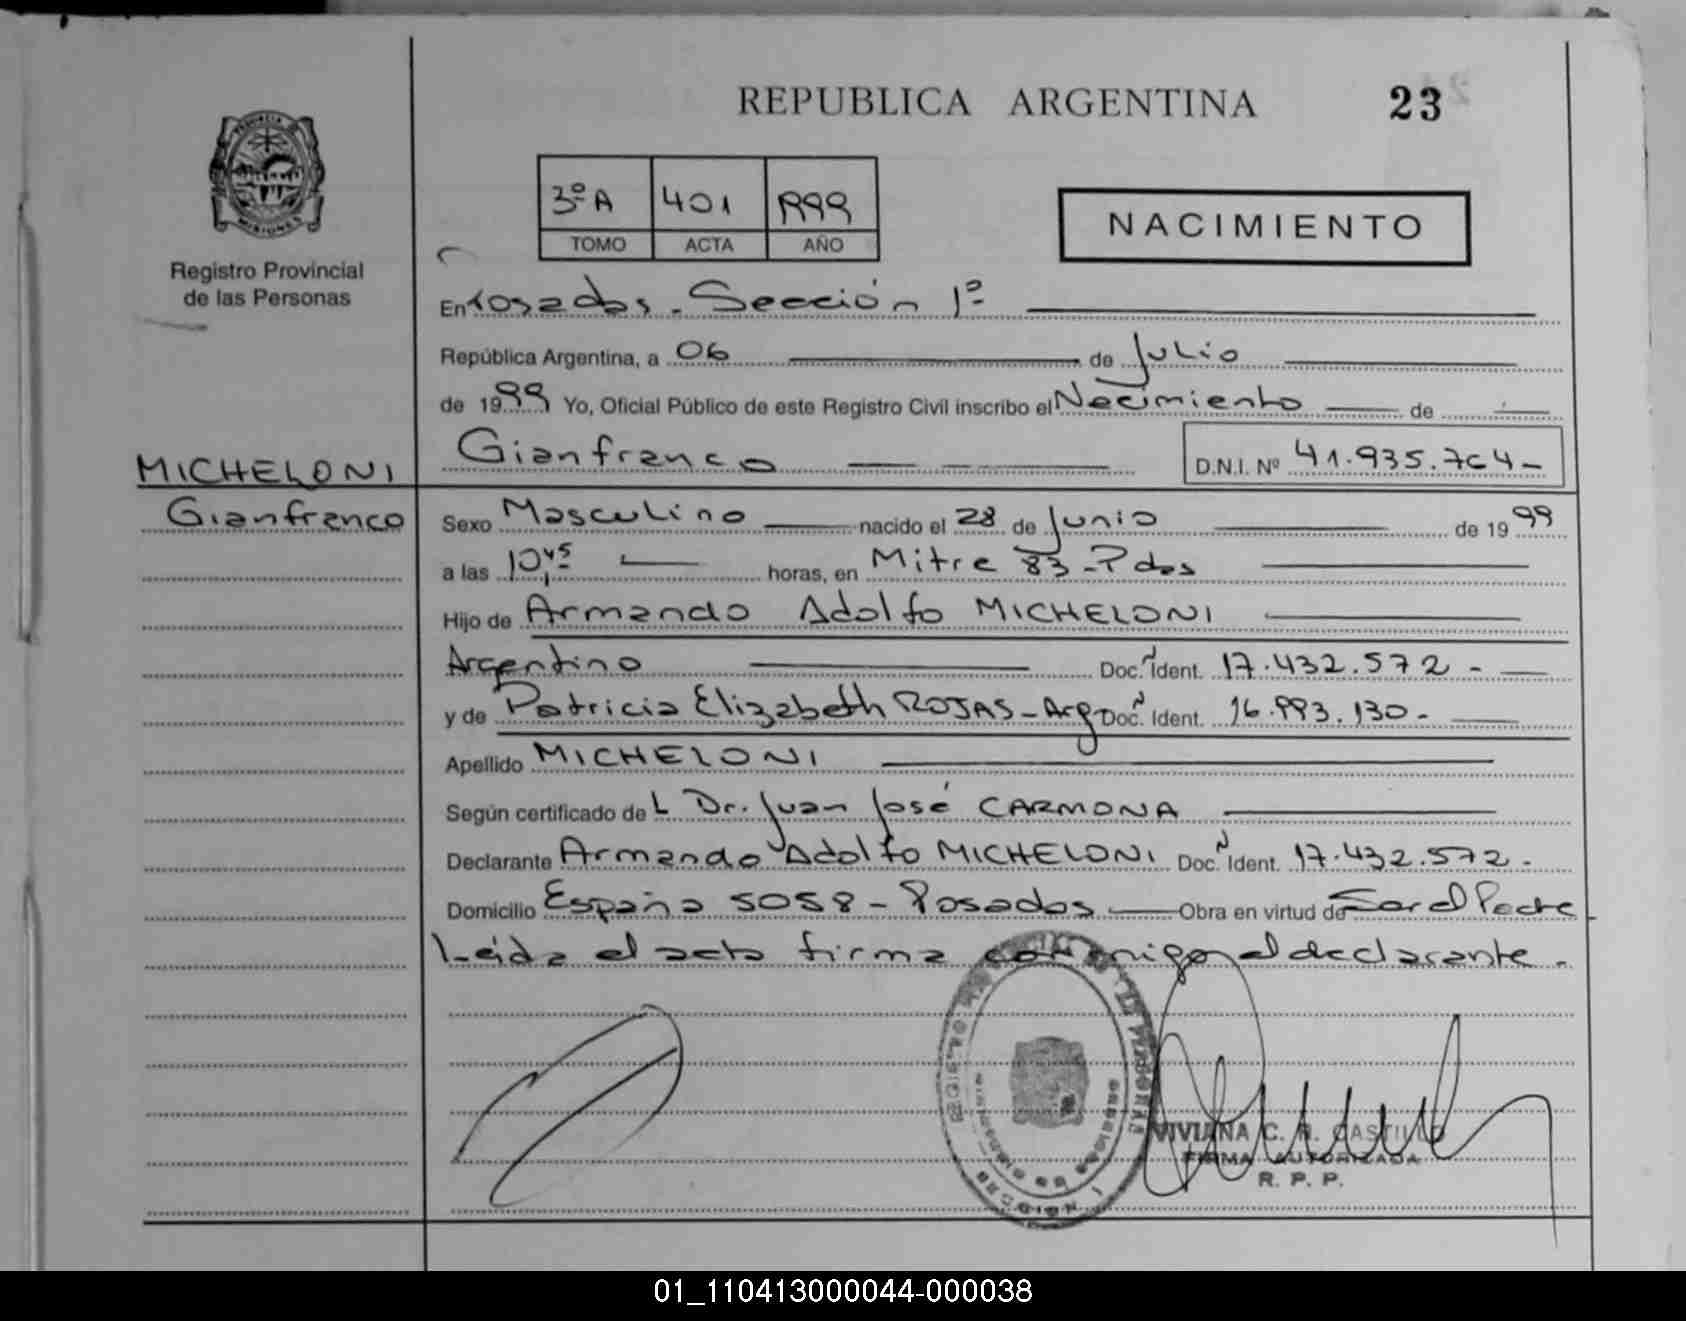 REPUBLICA ARGENTINA 23
3º A 401 1999
TOMO ACTA AÑO
NACIMIENTO
PROVINCIA DE MISIONES
Registro Provincial
de las Personas
En Posadas - Sección 1º
República Argentina, a 06 de Julio
de 1999 Yo, Oficial Público de este Registro Civil inscribo el Nacimiento de
Gianfranco D.N.I. Nº 41.935.764-
MICHELONI
Gianfranco
Sexo Masculino nacido el 28 de Junio de 1999
a las 10,45 horas, en Mitre 83 - Pdas
Hijo de Armando Adolfo MICHELONI
Argentino Doc. Ident. 17.432.572 -
y de Patricia Elizabeth ROJAS - Arg Doc. Ident. 16.993.130 -
Apellido MICHELONI
Según certificado de L Dr. Juan José CARMONA
Declarante Armando Adolfo MICHELONI Doc. Ident. 17.432.572 -
Domicilio España 5058 - Posadas Obra en virtud de Ser el Padre
Leída el acta firma conmigo el declarante -
VIVIANA C. R. CASTILLO
FIRMA AUTORIZADA
R. P. P.
01_110413000044-000038